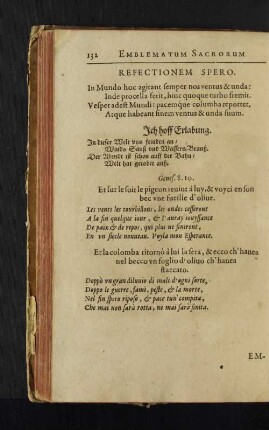 132 EMBLEMATUM SACRORUM
REFECTIONEM SPERO.
In Mundo hoc agitant semper nos ventus & unda:
Inde procella ferit, hinc quoque turbo fremit.
Vesper adest Mundi: pacemque columba reportet,
Atque habeant finem ventus & unda suum.
Ich hoff Erlabung.
In dieser Welt von
Winds Sauß vnd Wassers Brauß.
Der Abendt ist schon auff der Bahn/
Welt hat auß.
Genes. 8. 10.
Et sur le soir le pigeon reuint à luy, & voyci en son
bec vne fueille d'oliue.
Les vents les tourbillons, les ondes cesseront
A la fin quelque iour, & l'auray iouyssance
De paix & de repos, qui plus ne finiront,
En vn siecle nouueau. Voyla mon Esperance.
Et la colomba ritornò à lui la sera, & ecco ch'hauea
nel becco vn foglio d'oliuo ch'hauea
staccato.
Doppò vn gran diluuio di mali d'ogni sorte,
Doppo le guerre, fame, peste, & la morte,
Nel fin spero riposo, & pace tun' compita,
Che mai non sarà rotta, ne mai sarà finita.
EM-